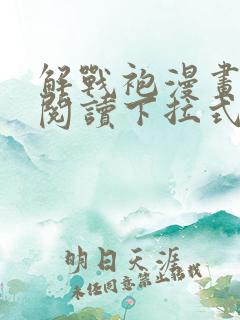 解戰袍漫畫
閱讀下拉式
明日天涯
未經同意禁止轉載